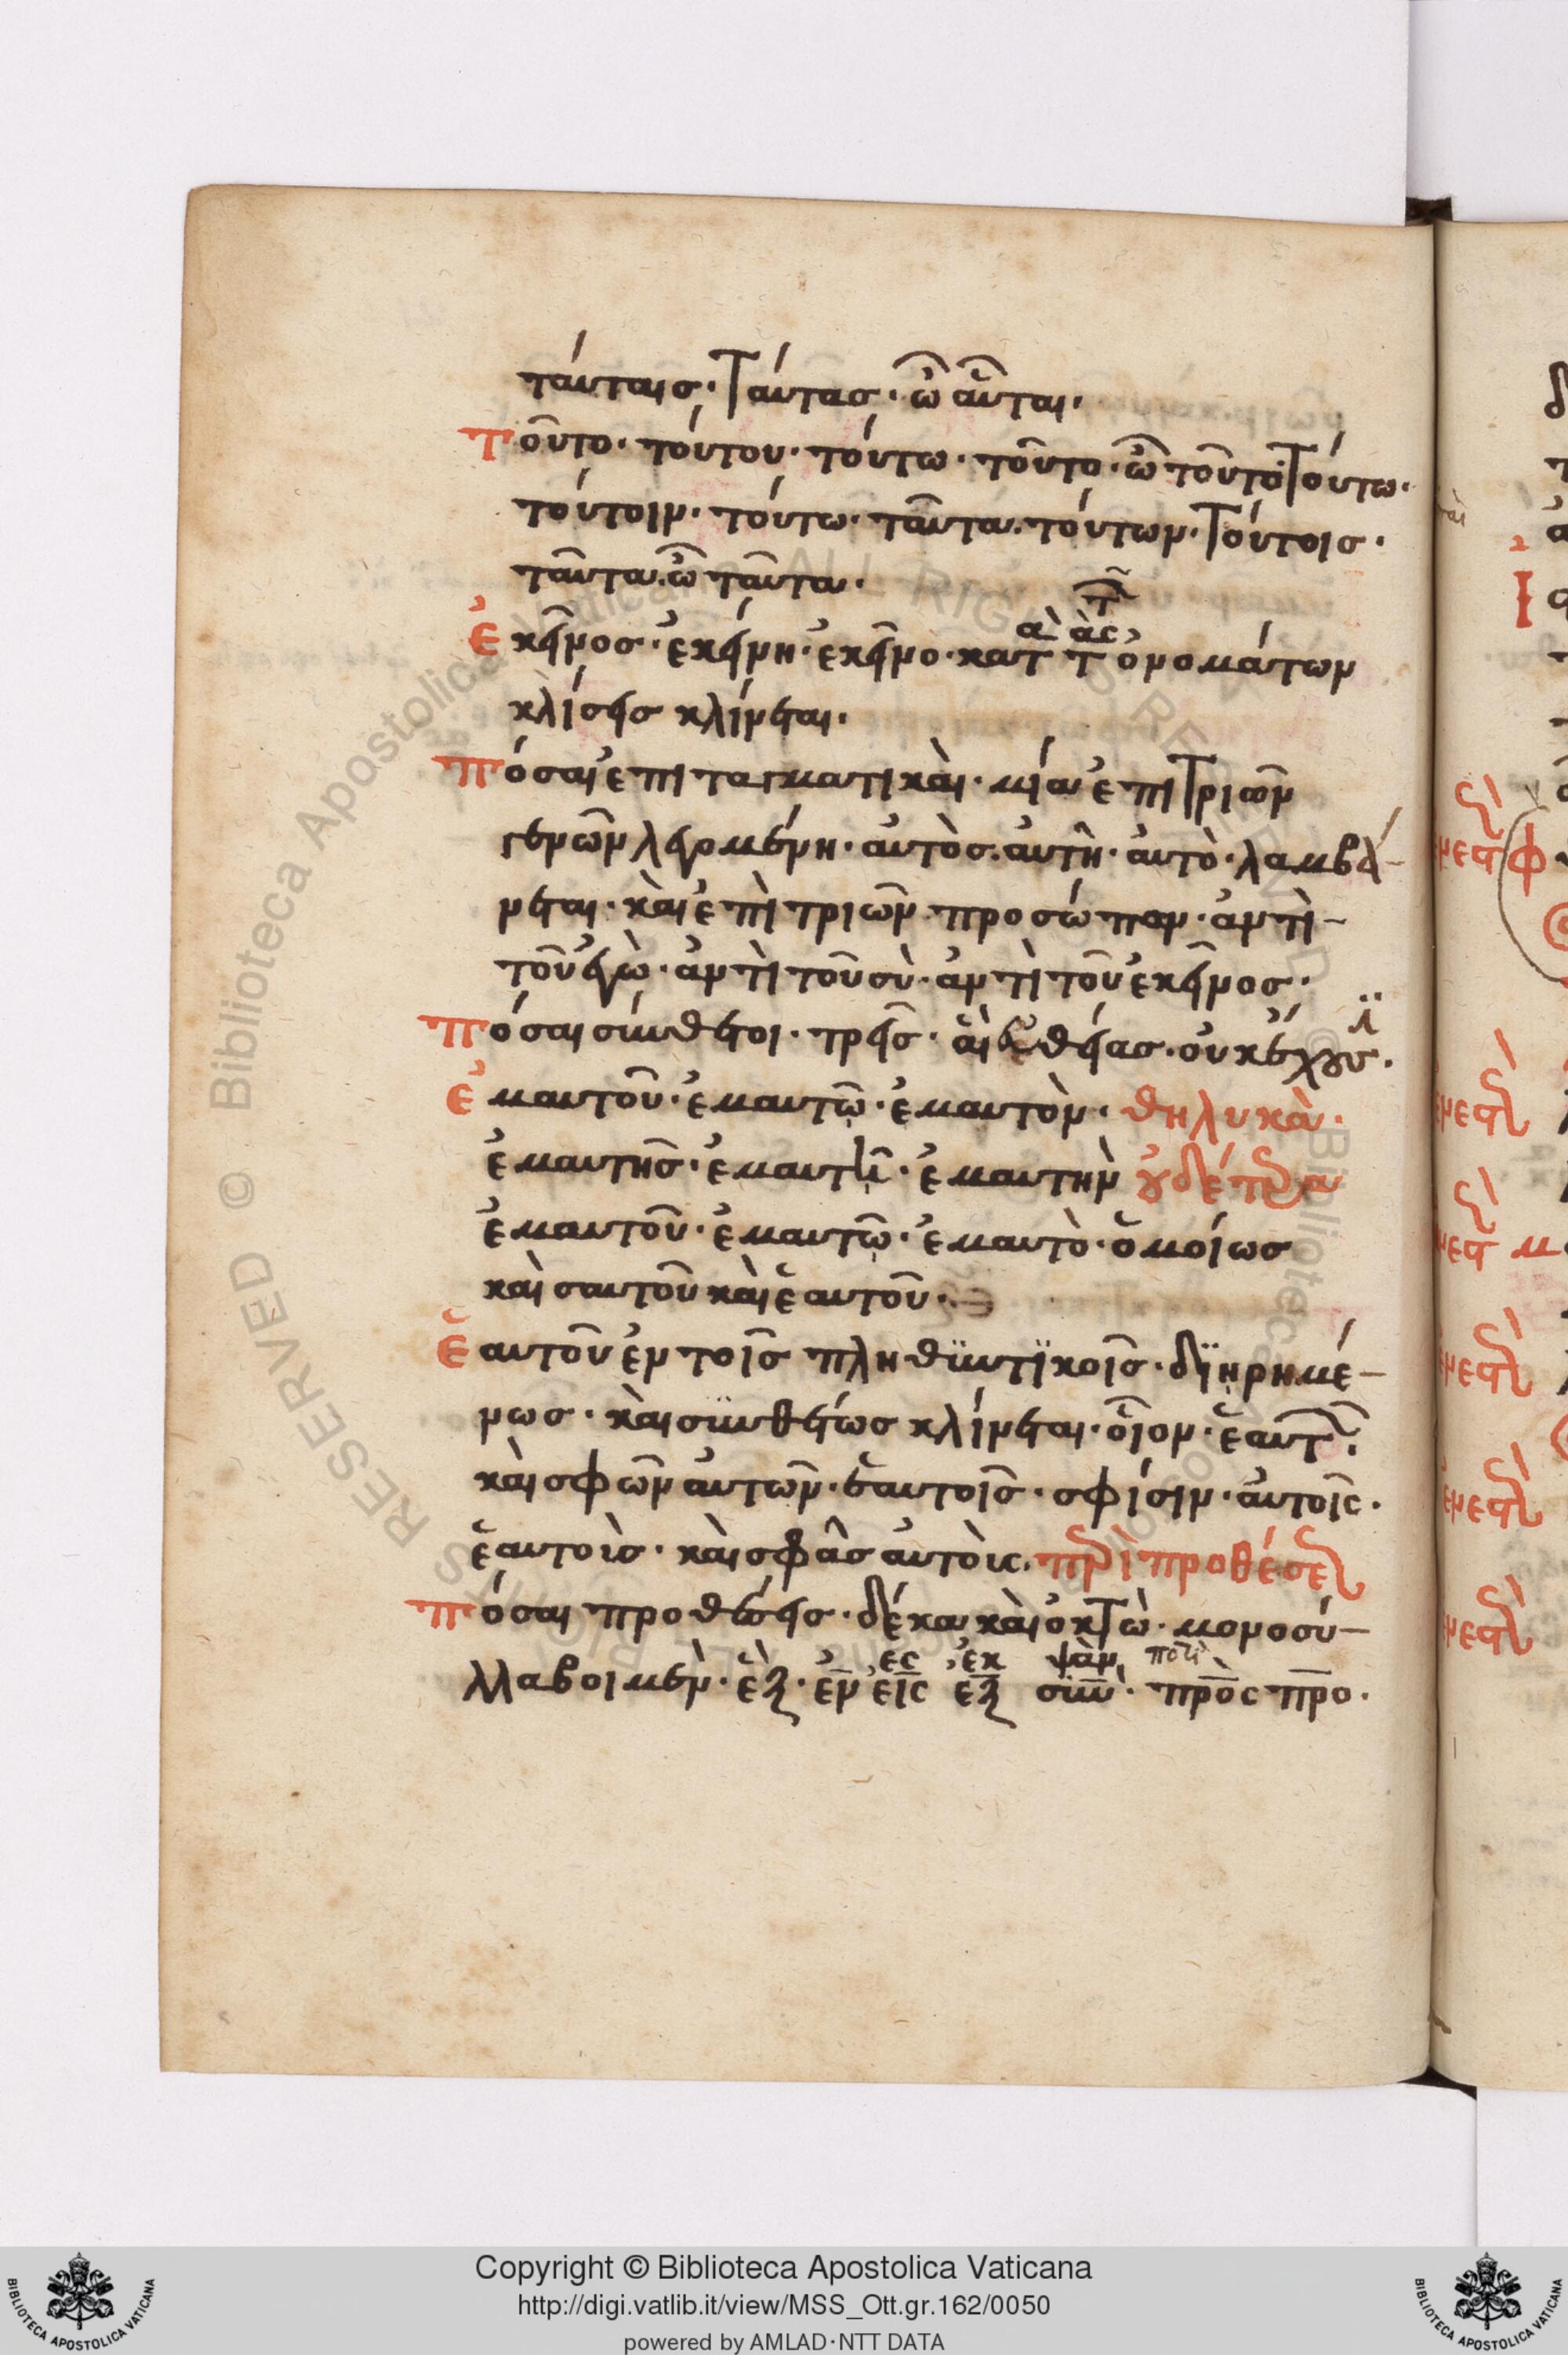 ταύταισ· Ταύτασ· ὦ αὗται·
Τοῦτο· τούτου· τούτω· τοῦτο· ὦ τοῦτο· Τούτω·
τούτοιν· τούτω· ταῦτα· τούτων· Τούτοισ·
ταῦτα· ὦ ταῦτα·
Ἐκεῖνοσ· ἐκείνη· ἐκεῖνο· κατ τ ὀνομάτων
κλίσεισ κλίνεται·
Πόσαι ἐπιταγματικαὶ· μία ἐπι Τριῶν
γενῶν λεγομένη· αὐτὸσ· αὐτὴ· αὐτὸ· λαμβά-
νεται· καὶ ἐπὶ τριῶν προσώπων· ἀντὶ-
τοῦ ἐγὼ· ἀντὶ τοῦ σὺ· ἀντὶ τοῦ ἐκεῖνοσ·
Πόσαι σύνθετοι· τρεῖσ· αἳ εὐθείασ· οὐκ ἔχου·
Ἐμαυτοῦ· ἐμαυτῶ· ἐμαυτὸν· θηλυκὰ·
ἐμαυτῆσ· ἐμαυτῆ· ἐμαυτὴν οὐδέτερα
ἐμαυτοῦ· ἐμαυτῶ· ἐμαυτὸ· ὁμοίωσ
καὶ σαυτοῦ καὶ ἑαυτοῦ·
Ἑαυτοῦ ἐν τοῖσ πληθϋντϊκοῖσ· δϊηρημέ-
νωσ· καὶ σϋνθέτωσ κλίνεται· οἷον· ἑαυτ·
καὶ σφῶν αὐτῶν· ἑαυτοῖσ· σφίσιν· αὐτοῖς·
ἑαυτοὺσ· καὶ σφᾶσ αὐτοὺς· περὶ προθέσεων
Πόσαι προθέσεισ· δέκα καὶ ὀκΤὼ· μονοσύ-
λλαβοι μὲν· ἓξ· ἐν εἰς ἐξ σϋν· πρὸς πρὸ·